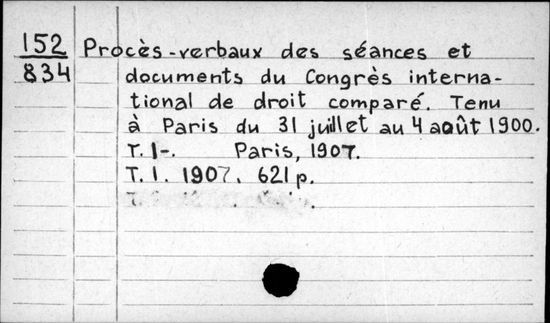 152 Procès-verbaux des séances et
834 documents du Congrès interna-
tional de droit comparé. Tenu
à Paris du 31 juillet au 4 août 1900.
T. 1-. Paris, 1907.
T. 1. 1907. 621 p.